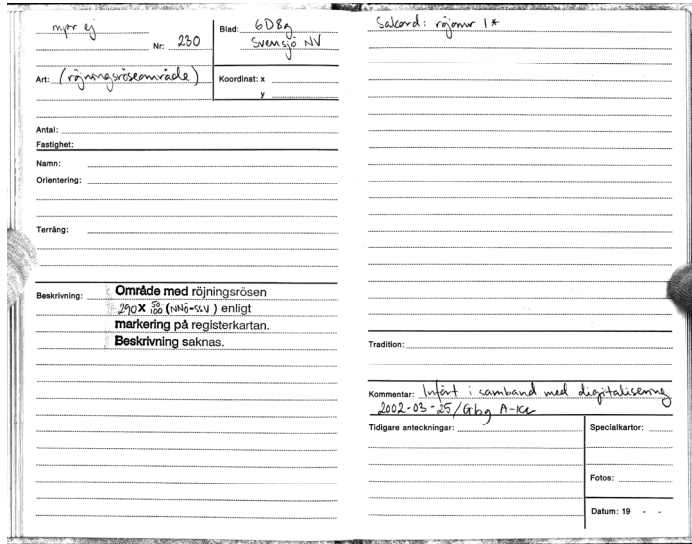 ej
Nr: 230
Blad: 6D8g
Svensjö NV
Art: (röjningsröseområde)
Koordinat: x
y
Antal:
Fastighet:
Namn:
Orientering:
Terräng:
Beskrivning: Område med röjningsrösen
290X 50/100 (NNÖ-SSV) enligt
markering på registerkartan.
Beskrivning saknas.
Sakord: röjomr 1*
Tradition:
Kommentar: Infört i samband med digitalisering
2002-03-25/Gbg
Tidigare anteckningar:
Specialkartor:
Fotos:
Datum: 19 - -